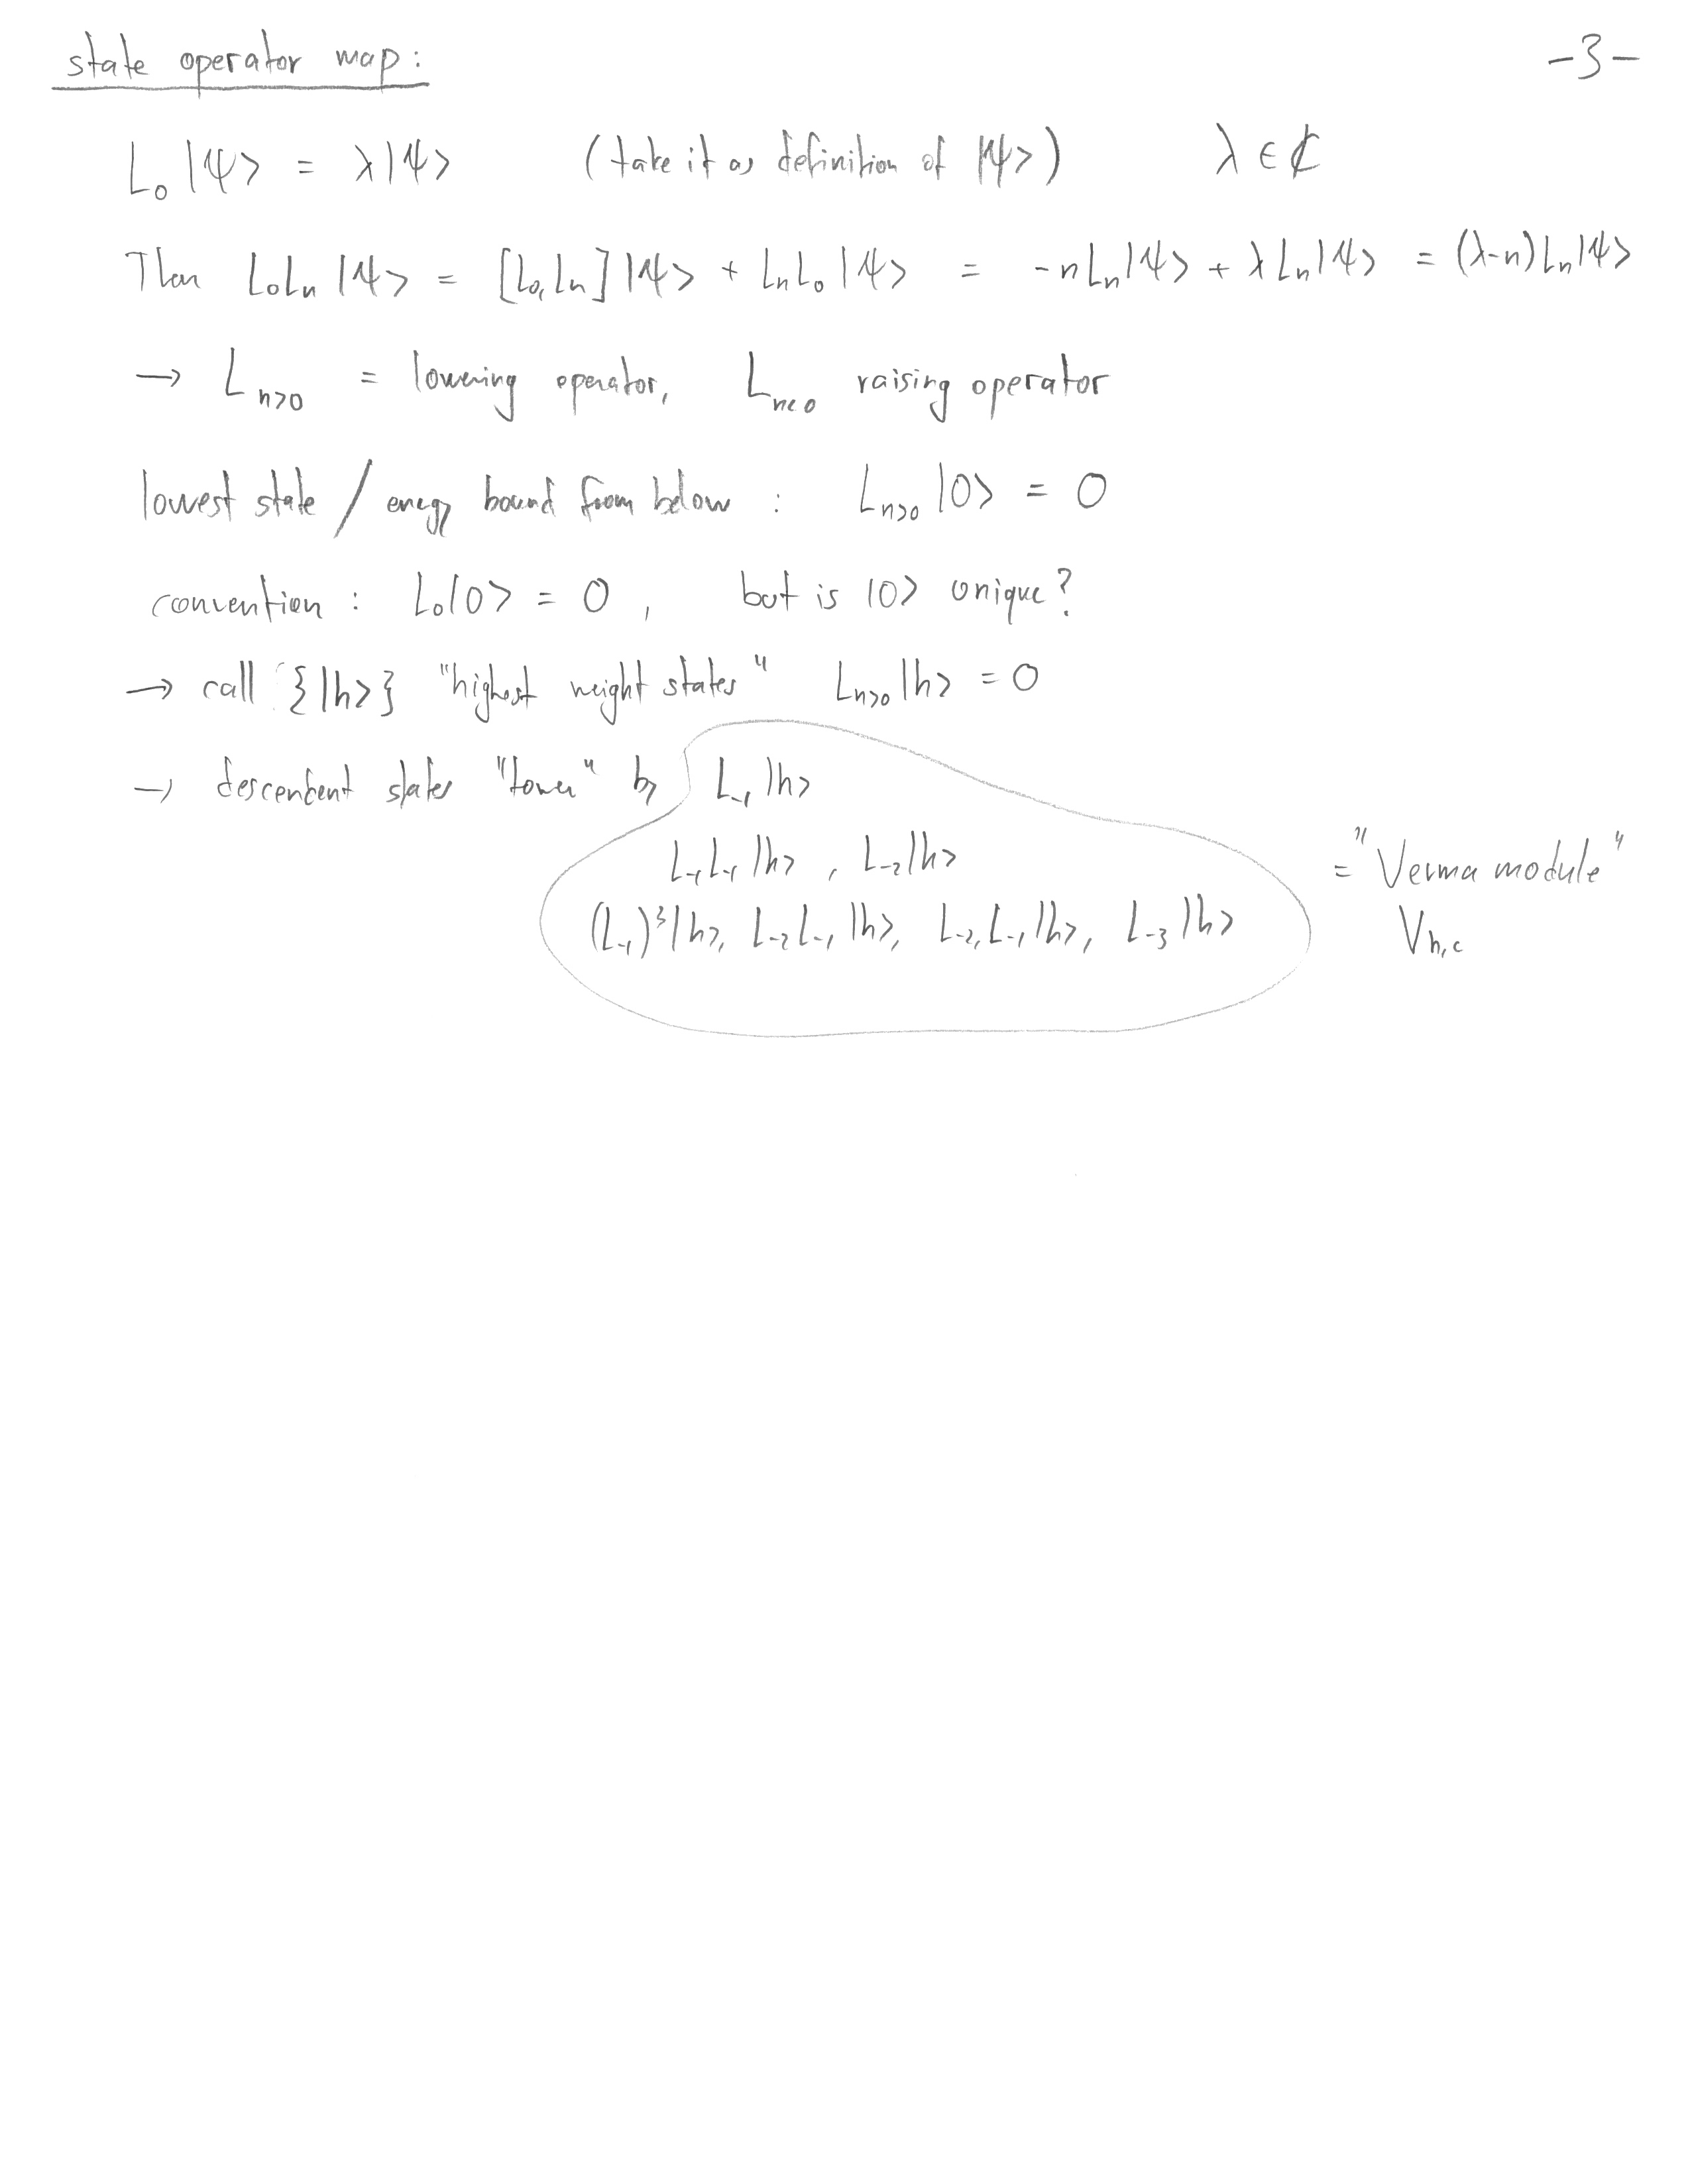 state operator map: -3-
L₀ |ψ> = λ|ψ> (take it as definition of |ψ>) λ ∈ ℂ
Then L₀Lₙ |ψ> = [L₀, Lₙ] |ψ> + LₙL₀ |ψ> = -n Lₙ|ψ> + λ Lₙ|ψ> = (λ-n) Lₙ|ψ>
→ L_{n>0} = lowering operator, L_{n<0} raising operator
lowest state / energy bound from below : L_{n>0} |0> = 0
convention : L₀|0> = 0 , but is |0> unique?
→ call {|h>} "highest weight states" L_{n>0}|h> = 0
→ descendent states "tower" by L₋₁ |h>
L₋₁L₋₁ |h> , L₋₂|h>
= "Verma module"
(L₋₁)³|h>, L₋₂L₋₁ |h>, L₋₂, L₋₁|h>, L₋₃ |h>
V_{h,c}